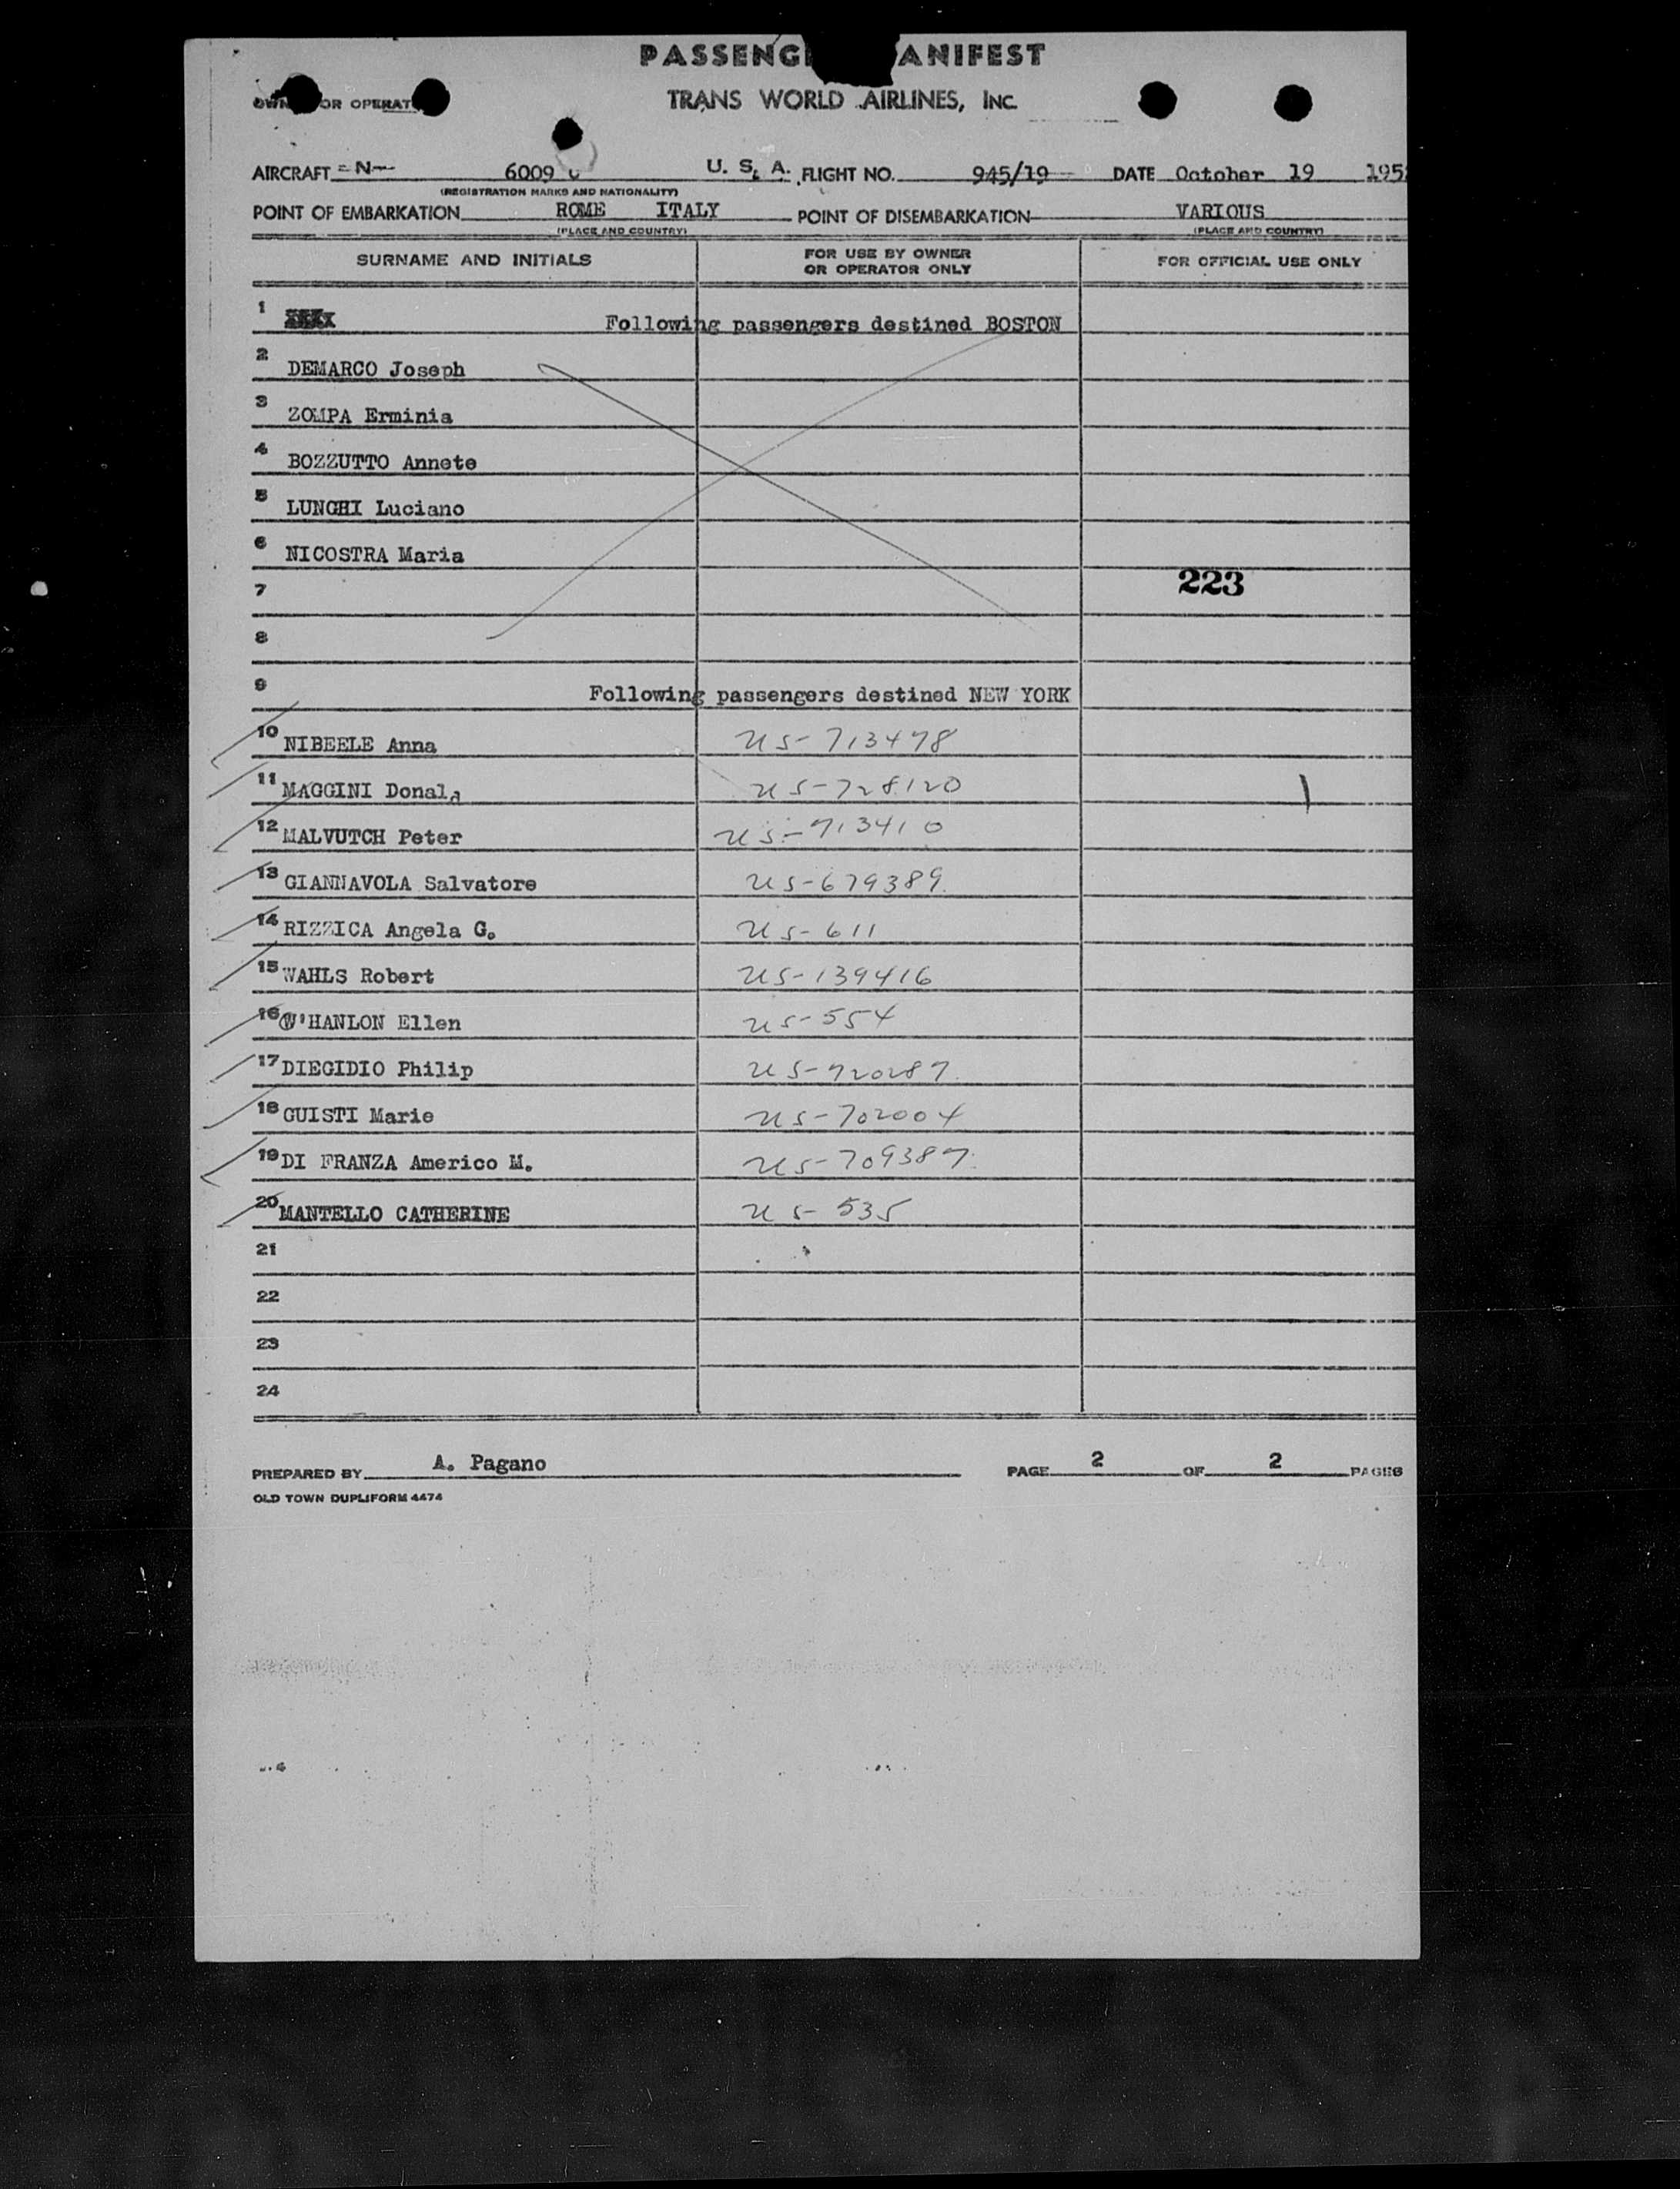 PASSENG ANIFEST
OR OPERAT
TRANS WORLD AIRLINES, INC.
AIRCRAFT N 6009 C U. S. A. FLIGHT NO. 945/19 DATE October 19 195
(REGISTRATION MARKS AND NATIONALITY)
POINT OF EMBARKATION ROME ITALY POINT OF DISEMBARKATION VARIOUS
(PLACE AND COUNTRY) (PLACE AND COUNTRY)
SURNAME AND INITIALS FOR USE BY OWNER OR OPERATOR ONLY FOR OFFICIAL USE ONLY
1 Following passengers destined BOSTON
2 DEMARCO Joseph
3 ZOMPA Erminia
4 BOZZUTTO Annete
5 LUNGHI Luciano
6 NICOSTRA Maria
7 223
8
9 Following passengers destined NEW YORK
10 NIBEELE Anna US-713478
11 MAGGINI Donald US-728120
12 MALVUTCH Peter US-713410
13 GIANNAVOLA Salvatore US-679389
14 RIZZICA Angela G. US-611
15 WAHLS Robert US-139416
16 O'HANLON Ellen US-554
17 DIEGIDIO Philip US-720287
18 GUISTI Marie US-702004
19 DI FRANZA Americo M. US-709387
20 MANTELLO CATHERINE US-535
21
22
23
24
PREPARED BY A. Pagano PAGE 2 OF 2 PAGES
OLD TOWN DUPLIFORM 4474